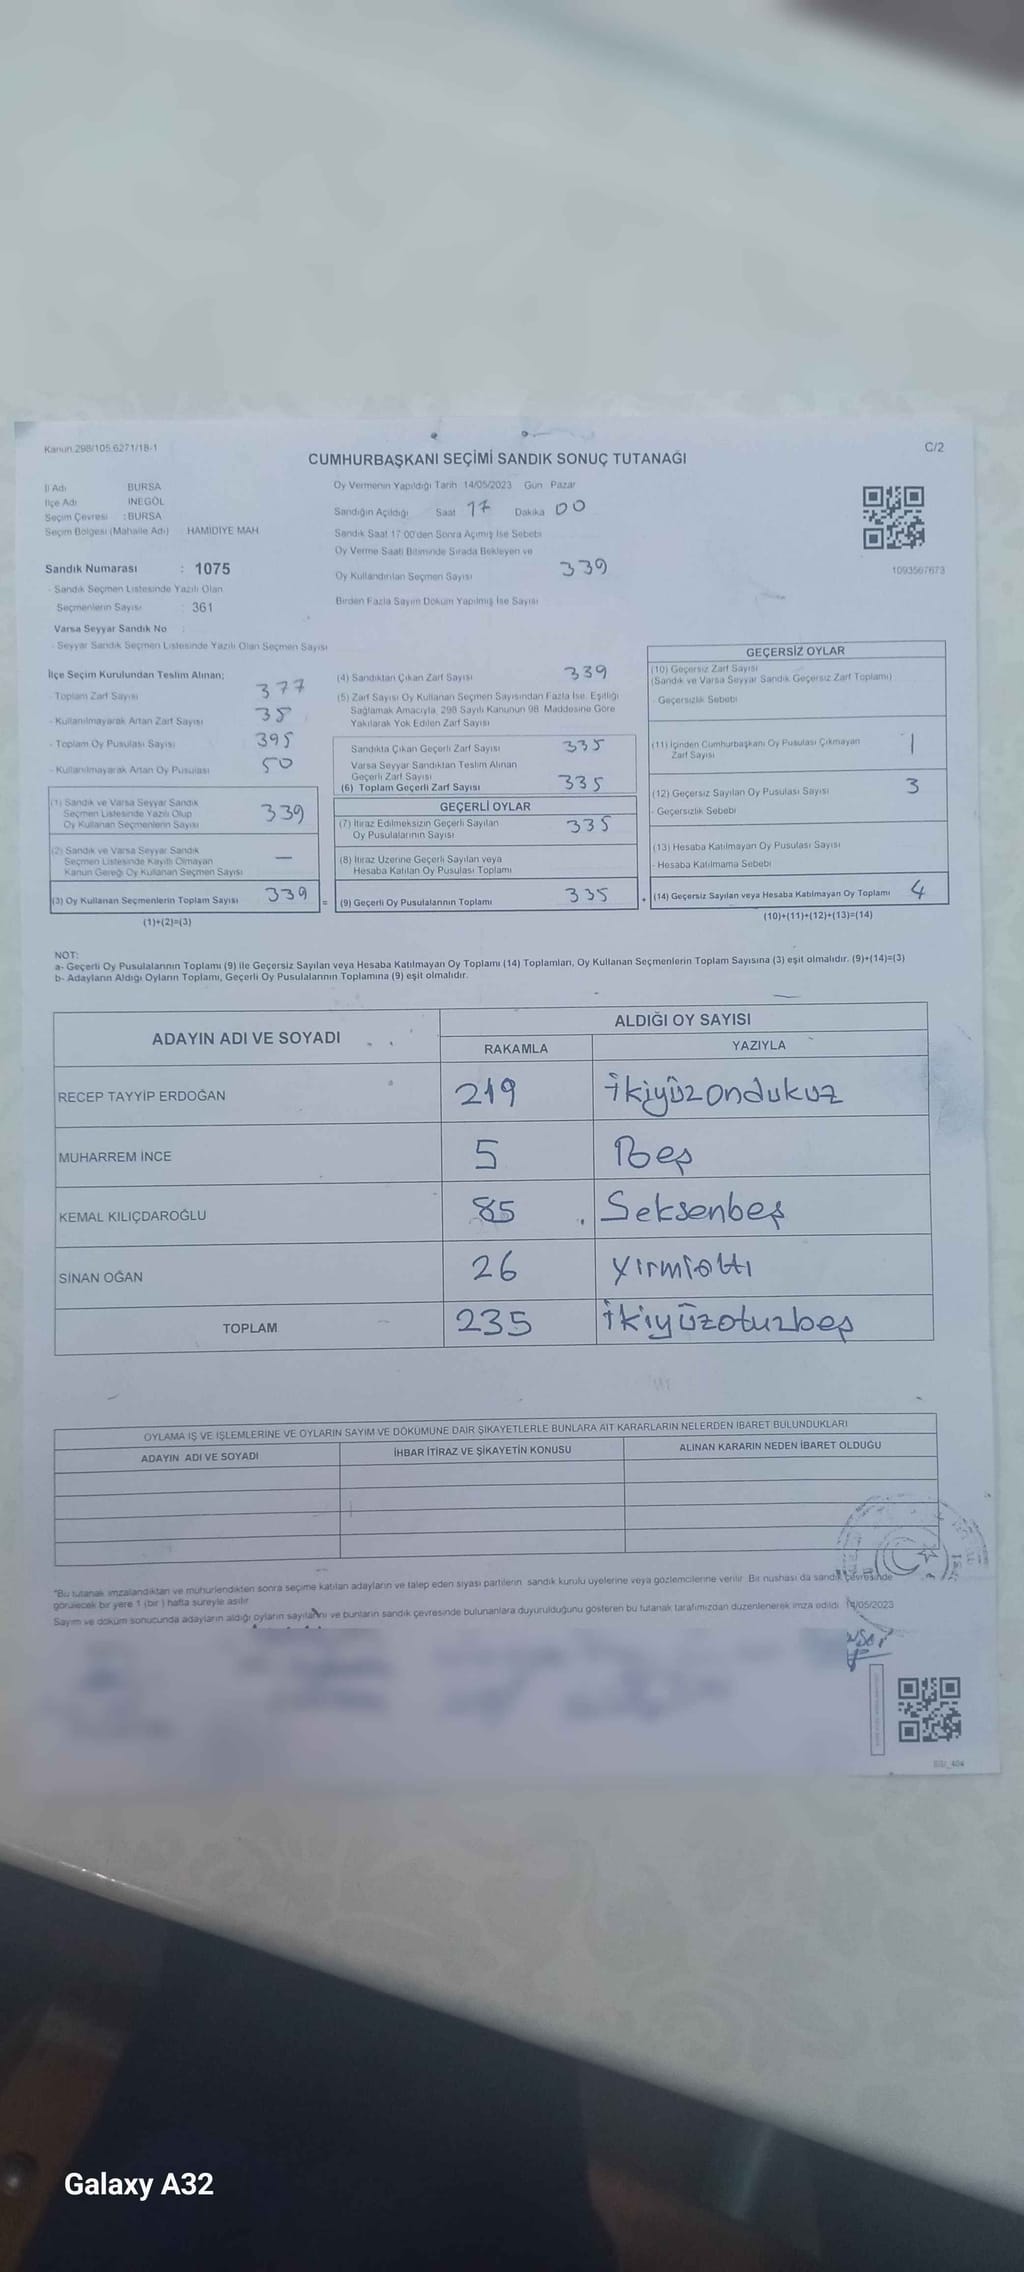 Kanun 298/105.6271/18-1
C/2
CUMHURBAŞKANI SEÇİMİ SANDIK SONUÇ TUTANAĞI
İl Adı BURSA
İlçe Adı İNEGÖL
Seçim Çevresi : BURSA
Seçim Bölgesi (Mahalle Adı) HAMİDİYE MAH
Sandık Numarası : 1075
- Sandık Seçmen Listesinde Yazılı Olan
Seçmenlerin Sayısı : 361
Varsa Seyyar Sandık No :
- Seyyar Sandık Seçmen Listesinde Yazılı Olan Seçmen Sayısı
Oy Vermenin Yapıldığı Tarih 14/05/2023 Gün Pazar
Sandığın Açıldığı Saat 17 Dakika 00
Sandık Saat 17:00'den Sonra Açımış İse Sebebi
Oy Verme Saati Bitiminde Sırada Bekleyen ve
Oy Kullandırılan Seçmen Sayısı 339
Birden Fazla Sayım Döküm Yapılmış İse Sayısı
1093567673
İlçe Seçim Kurulundan Teslim Alınan;
- Toplam Zarf Sayısı 377
- Kullanılmayarak Artan Zarf Sayısı 35
- Toplam Oy Pusulası Sayısı 395
- Kullanılmayarak Artan Oy Pusulası 50
(1) Sandık ve Varsa Seyyar Sandık
Seçmen Listesinde Yazılı Olup
Oy Kullanan Seçmenlerin Sayısı 339
(2) Sandık ve Varsa Seyyar Sandık
Seçmen Listesinde Kayıtlı Olmayan
Kanun Gereği Oy Kullanan Seçmen Sayısı —
(3) Oy Kullanan Seçmenlerin Toplam Sayısı 339
(1)+(2)=(3)
(4) Sandıktan Çıkan Zarf Sayısı 339
(5) Zarf Sayısı Oy Kullanan Seçmen Sayısından Fazla İse, Eşitliği
Sağlamak Amacıyla, 298 Sayılı Kanunun 98. Maddesine Göre
Yakılarak Yok Edilen Zarf Sayısı
Sandıkta Çıkan Geçerli Zarf Sayısı 335
Varsa Seyyar Sandıktan Teslim Alınan
Geçerli Zarf Sayısı
(6) Toplam Geçerli Zarf Sayısı 335
GEÇERLİ OYLAR
(7) İtiraz Edilmeksizin Geçerli Sayılan
Oy Pusulalarının Sayısı 335
(8) İtiraz Üzerine Geçerli Sayılan veya
Hesaba Katılan Oy Pusulası Toplamı
= (9) Geçerli Oy Pusulalarının Toplamı 335
GEÇERSİZ OYLAR
(10) Geçersiz Zarf Sayısı
(Sandık ve Varsa Seyyar Sandık Geçersiz Zarf Toplamı)
- Geçersizlik Sebebi
(11) İçinden Cumhurbaşkanı Oy Pusulası Çıkmayan
Zarf Sayısı 1
(12) Geçersiz Sayılan Oy Pusulası Sayısı 3
- Geçersizlik Sebebi
(13) Hesaba Katılmayan Oy Pusulası Sayısı
- Hesaba Katılmama Sebebi
+ (14) Geçersiz Sayılan veya Hesaba Katılmayan Oy Toplamı 4
(10)+(11)+(12)+(13)=(14)
NOT:
a- Geçerli Oy Pusulalarının Toplamı (9) ile Geçersiz Sayılan veya Hesaba Katılmayan Oy Toplamı (14) Toplamları, Oy Kullanan Seçmenlerin Toplam Sayısına (3) eşit olmalıdır. (9)+(14)=(3)
b- Adayların Aldığı Oyların Toplamı, Geçerli Oy Pusulalarının Toplamına (9) eşit olmalıdır.
ADAYIN ADI VE SOYADI ALDIĞI OY SAYISI
RAKAMLA YAZIYLA
RECEP TAYYİP ERDOĞAN 219 ikiyüzondukuz
MUHARREM İNCE 5 Beş
KEMAL KILIÇDAROĞLU 85 Seksenbeş
SİNAN OĞAN 26 Yirmialtı
TOPLAM 235 ikiyüzotuzbeş
OYLAMA İŞ VE İŞLEMLERİNE VE OYLARIN SAYIM VE DÖKÜMÜNE DAİR ŞİKAYETLERLE BUNLARA AİT KARARLARIN NELERDEN İBARET BULUNDUKLARI
ADAYIN ADI VE SOYADI İHBAR İTİRAZ VE ŞİKAYETİN KONUSU ALINAN KARARIN NEDEN İBARET OLDUĞU
"Bu tutanak imzalandıktan ve mühürlendikten sonra seçime katılan adayların ve talep eden siyasi partilerin sandık kurulu üyelerine veya gözlemcilerine verilir. Bir nüshası da sandık çevresinde
görülecek bir yere 1 (bir) hafta süreyle asılır.
Sayım ve döküm sonucunda adayların aldığı oyların sayılarını ve bunların sandık çevresinde bulunanlara duyurulduğunu gösteren bu tutanak tarafımızdan düzenlenerek imza edildi. 14/05/2023
Galaxy A32